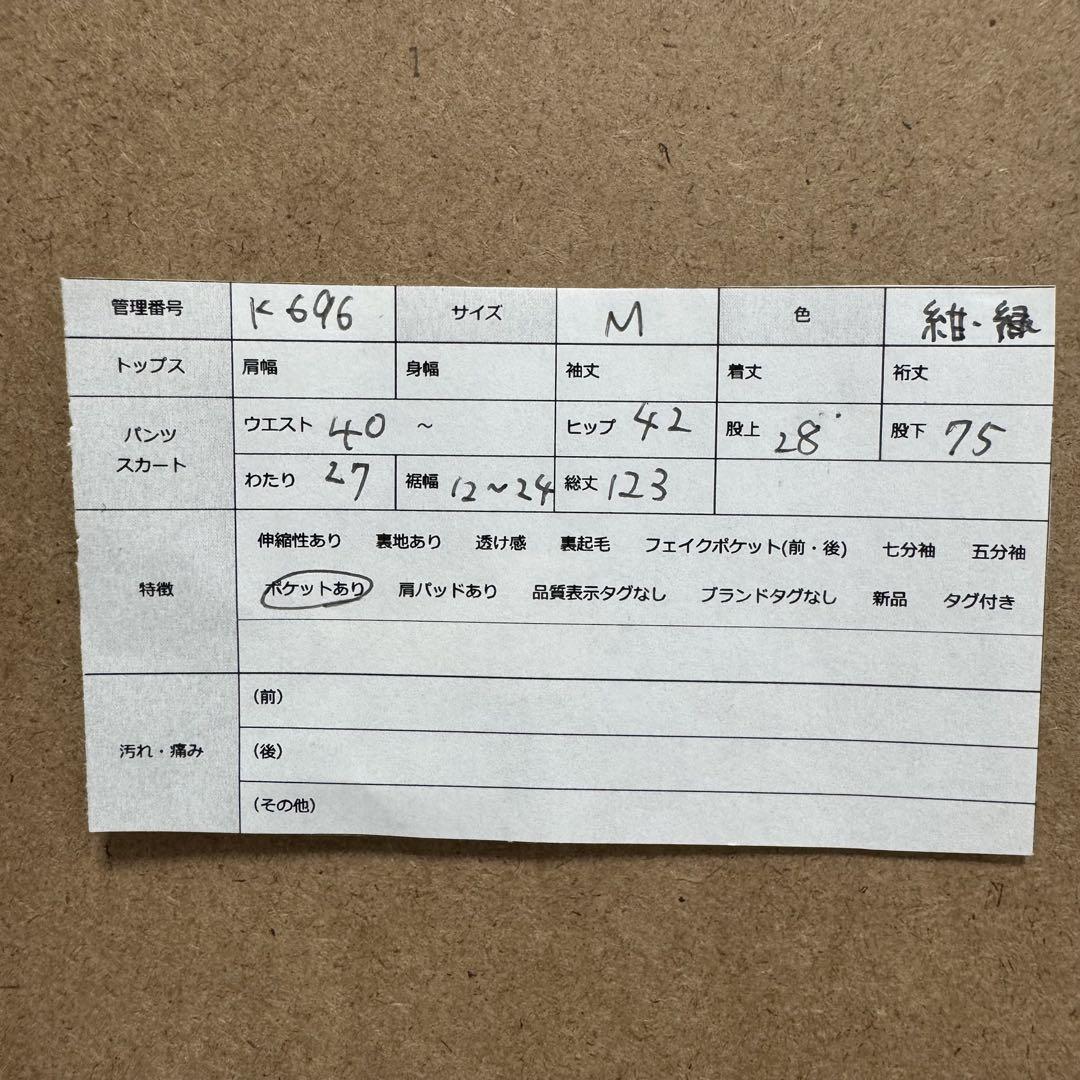 管理番号 K696 サイズ M 色 紺・緑
トップス 肩幅 身幅 袖丈 着丈 裄丈
パンツ スカート
ウエスト 40 ～ ヒップ 42 股上 28 股下 75
わたり 27 裾幅 12～24 総丈 123
特徴
伸縮性あり 裏地あり 透け感 裏起毛 フェイクポケット(前・後) 七分袖 五分袖
ポケットあり 肩パッドあり 品質表示タグなし ブランドタグなし 新品 タグ付き
汚れ・痛み
（前）
（後）
（その他）